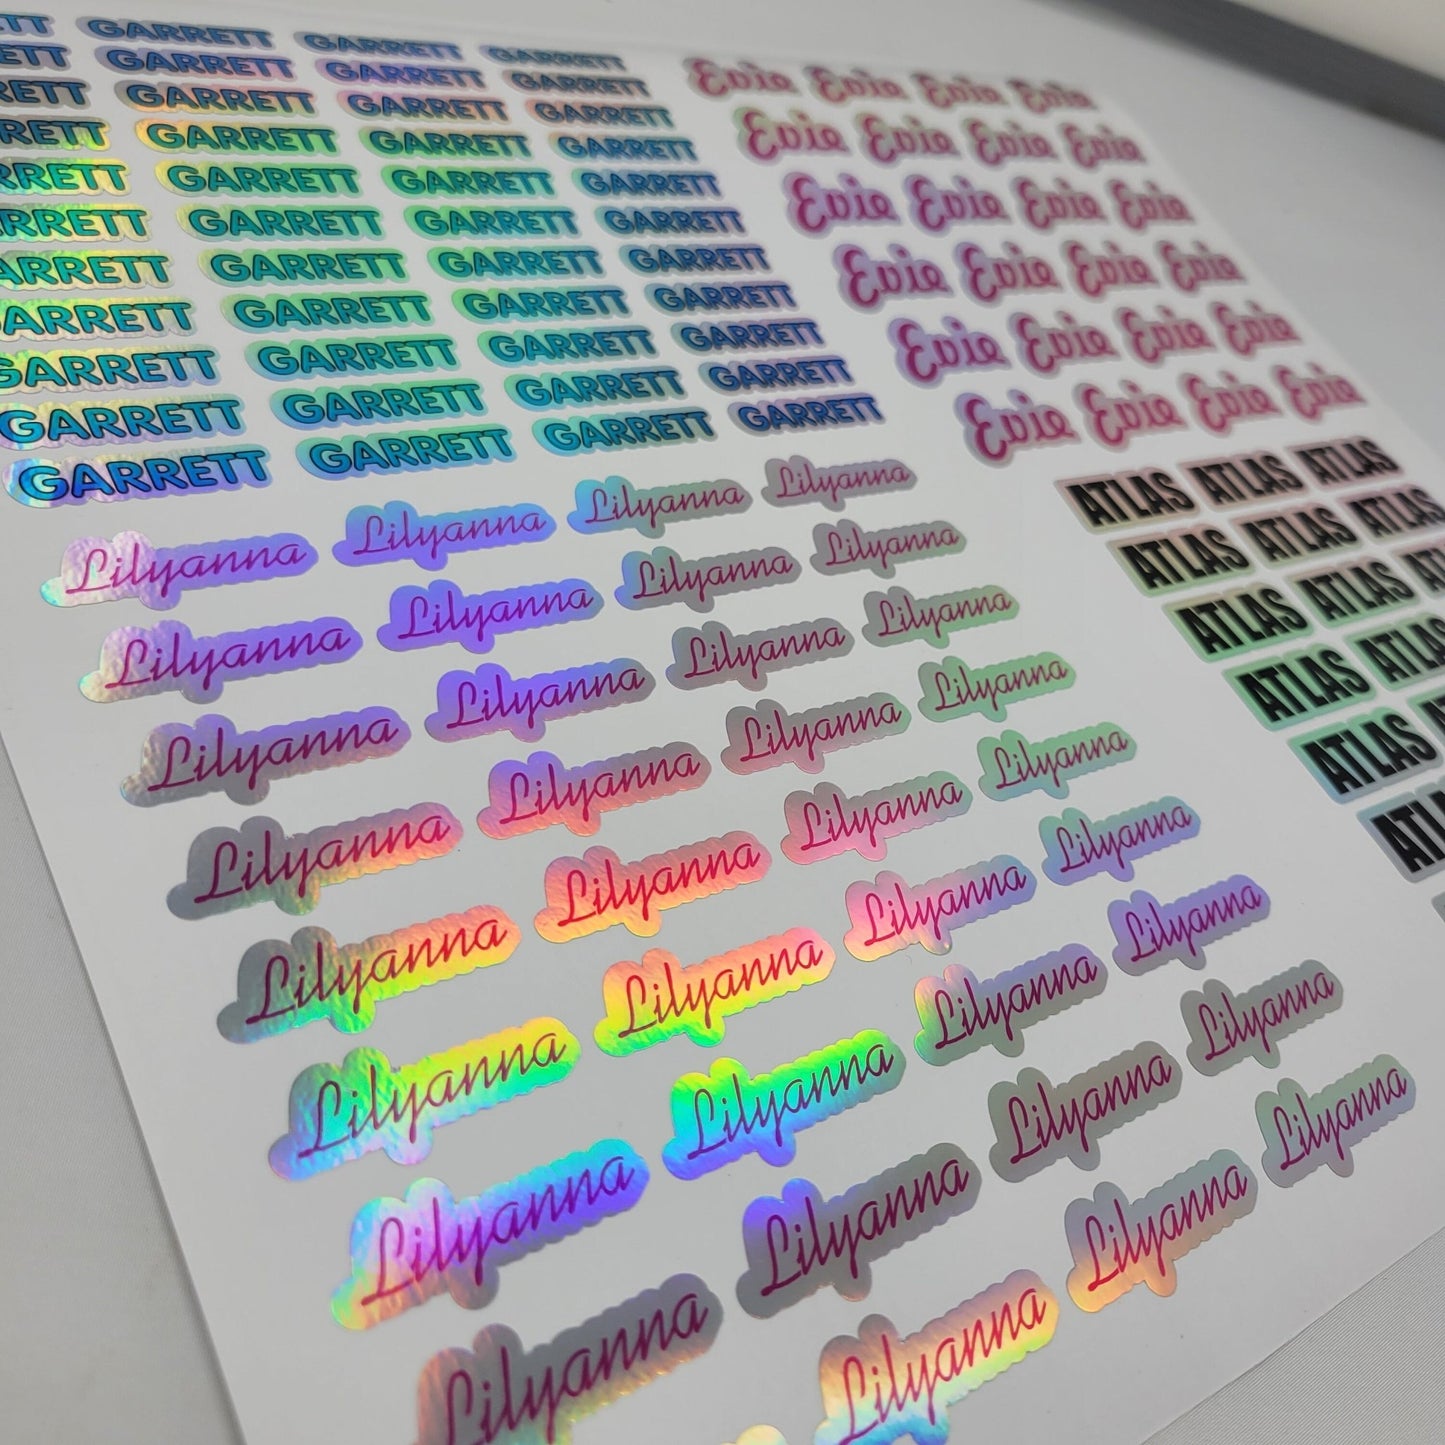 ETT GARRETT GARRETT GARRETT
ETT GARRETT GARRETT GARRETT
RETT GARRETT GARRETT GARRETT
RRETT GARRETT GARRETT GARRETT
RRETT GARRETT GARRETT GARRETT
RRETT GARRETT GARRETT GARRETT
ARRETT GARRETT GARRETT GARRETT
ARRETT GARRETT GARRETT GARRETT
GARRETT GARRETT GARRETT GARRETT
GARRETT GARRETT GARRETT GARRETT
GARRETT GARRETT GARRETT GARRETT
Evie Evie Evie Evie
Evie Evie Evie Evie
Evie Evie Evie Evie
Evie Evie Evie Evie
Evie Evie Evie Evie
Evie Evie Evie Evie
Lilyanna Lilyanna Lilyanna Lilyanna
Lilyanna Lilyanna Lilyanna Lilyanna
Lilyanna Lilyanna Lilyanna Lilyanna
Lilyanna Lilyanna Lilyanna Lilyanna
Lilyanna Lilyanna Lilyanna Lilyanna
Lilyanna Lilyanna Lilyanna Lilyanna
Lilyanna Lilyanna Lilyanna Lilyanna
Lilyanna Lilyanna Lilyanna Lilyanna
Lilyanna Lilyanna Lilyanna
ATLAS ATLAS ATLAS
ATLAS ATLAS ATLAS
ATLAS ATLAS
ATLAS ATLAS
ATLAS
ATL